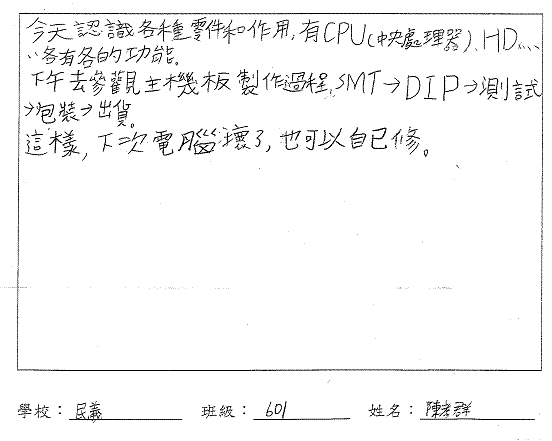 今天認識各種零件和作用,有CPU(中央處理器)、HD....
..各有各的功能.
下午去參觀主機板製作過程,SMT→DIP→測試
→包裝→出貨。
這樣,下次電腦壞了,也可以自已修。
學校:民義 班級:601 姓名:陳孝群